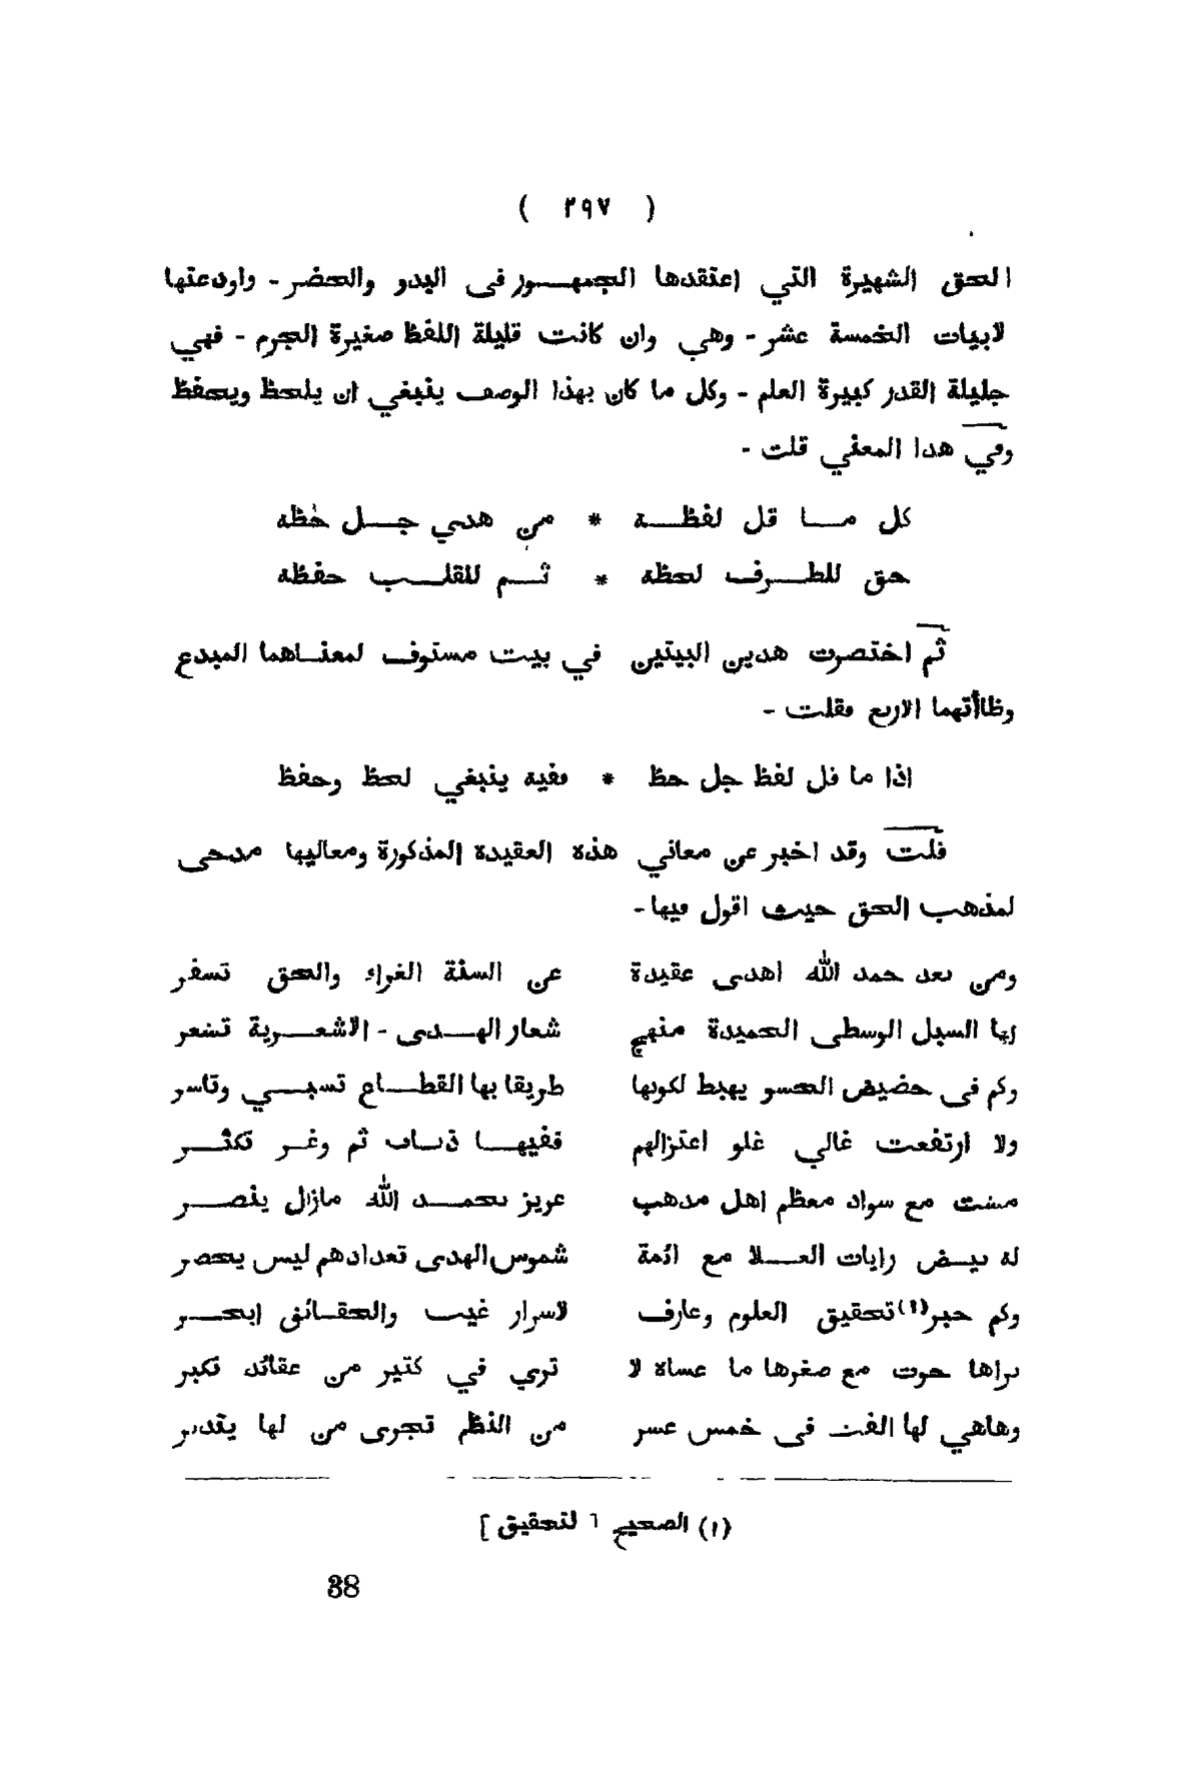 ( ٢٩٧ )
الحق الشهيرة التي اعتقدها الجمهور فى البدو والحضر - واودعتها
لابيات الخمسة عشر - وهي وان كانت قليلة اللفظ صغيرة الجرم - فهي
جليلة القدر كبيرة العلم - وكل ما كان بهذا الوصف ينبغي ان يلحظ ويحفظ
وفي هدا المعني قلت -
كل مـــا قل لفظـــة * من هدى جـــل حظه
حق للطـــرف لحظه * ثـــم للقلـــب حفظه
ثم اختصرت هدين البيتين في بيت مستوف لمعنـاهما المبدع
وظاأتهما الاربع فقلت -
اذا ما قل لفظ جل حظ * ففيه ينبغي لحظ وحفظ
قلت وقد اخبر عن معاني هذه العقيدة المذكورة ومعاليها مدحى
لمذهب الحق حيث اقول فيها -
ومن بعد حمد الله اهدى عقيدة عن السنة الغراء والحق تسفر
لها السبل الوسطى الحميدة منهج شعار الهـــدى - الاشعـــرية تشعر
وكم فى حضيض الحسو يهبط لكونها طريقا بها القطـــاع تسبـــي وتاسر
ولا ارتفعت غالي غلو اعتزالهم ففيهـــا ذئـاب ثم وغـــر تكثـــر
مشت مع سواد معظم اهل مدهب عزيز بحمـــد الله مازال ينصـــر
له بيـــض رايات العـــلا مع ائمة شموس الهدى تعدادهم ليس يحصر
وكم حبر(١) تحقيق العلوم وعارف لاسرار غيب والحقـائق ابحـــر
براها حوت مع صغرها ما عساه لا تري في كثير من عقائد تكبر
وهاهي لها الفت فى خمس عسر من النظم تجرى من لها يتدبر
(١) الصحيح [ لتحقيق ]
38